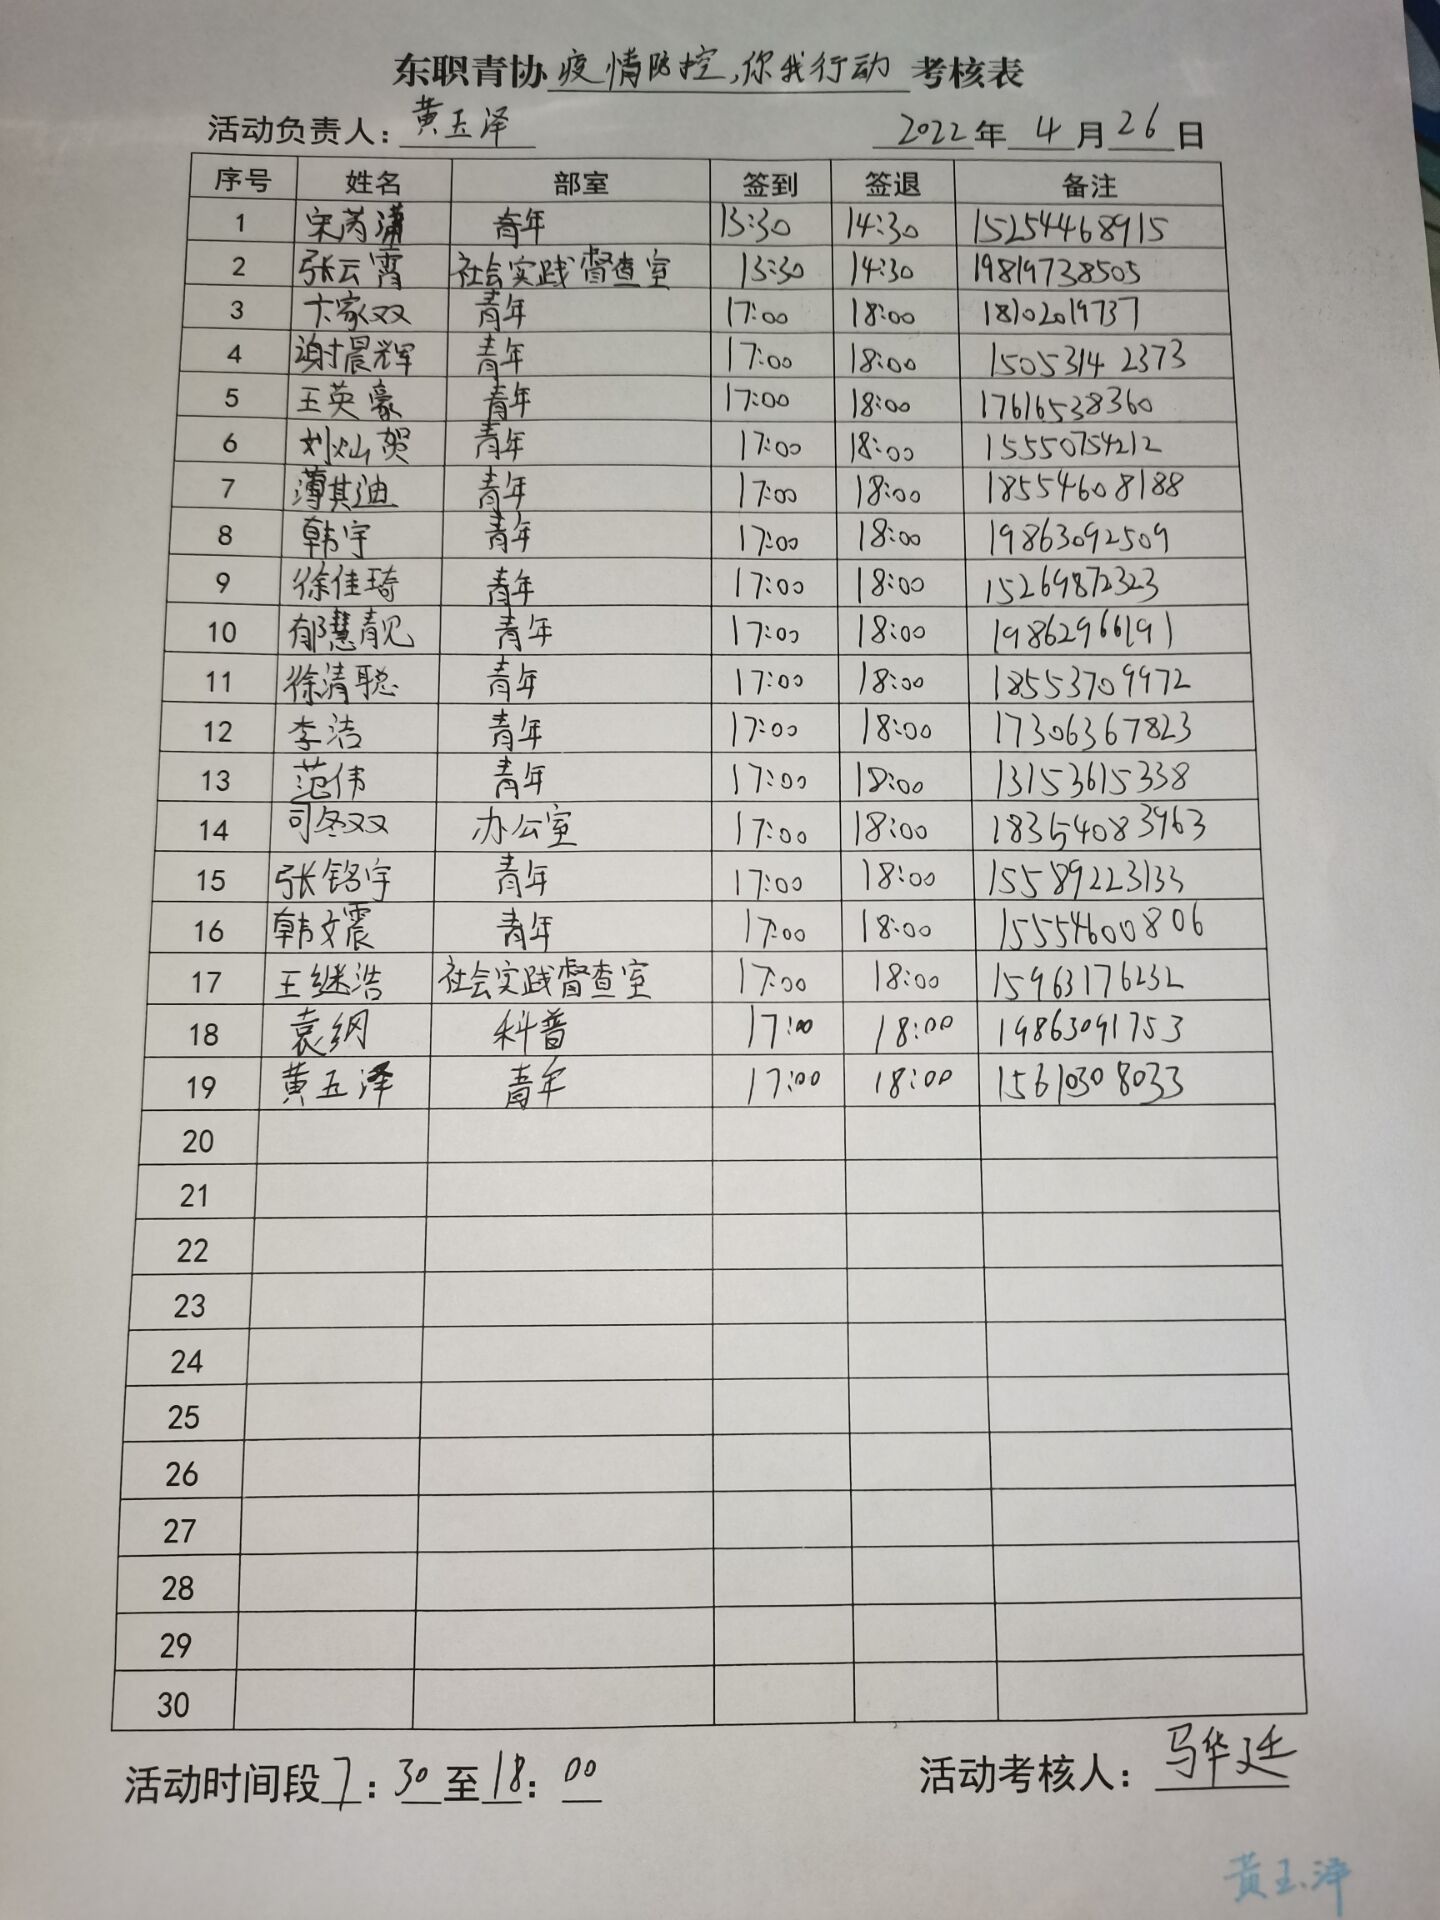 东职青协疫情防控,你我行动考核表
活动负责人:黄玉泽 2022年4月26日
序号 姓名 部室 签到 签退 备注
1 宋芮潇 青年 13:30 14:30 15254468915
2 张云霄 社会实践督查室 13:30 14:30 19819738505
3 卞家双 青年 17:00 18:00 18102019737
4 谢晨辉 青年 17:00 18:00 15053142373
5 王英豪 青年 17:00 18:00 17616538360
6 刘灿贺 青年 17:00 18:00 15550754212
7 薄其迪 青年 17:00 18:00 18554608188
8 韩宇 青年 17:00 18:00 19863092509
9 徐佳琦 青年 17:00 18:00 15269872323
10 郁慧靓 青年 17:00 18:00 19862966191
11 徐清聪 青年 17:00 18:00 18553709972
12 李洁 青年 17:00 18:00 17306367823
13 范伟 青年 17:00 18:00 13153615338
14 司冬双 办公室 17:00 18:00 18354083963
15 张铭宇 青年 17:00 18:00 15589223133
16 韩文震 青年 17:00 18:00 15554600806
17 王继浩 社会实践督查室 17:00 18:00 15963176232
18 袁纲 科普 17:00 18:00 19863091753
19 黄玉泽 青年 17:00 18:00 15610308033
20
21
22
23
24
25
26
27
28
29
30
活动时间段7:30至18:00 活动考核人:马华廷
黄玉泽